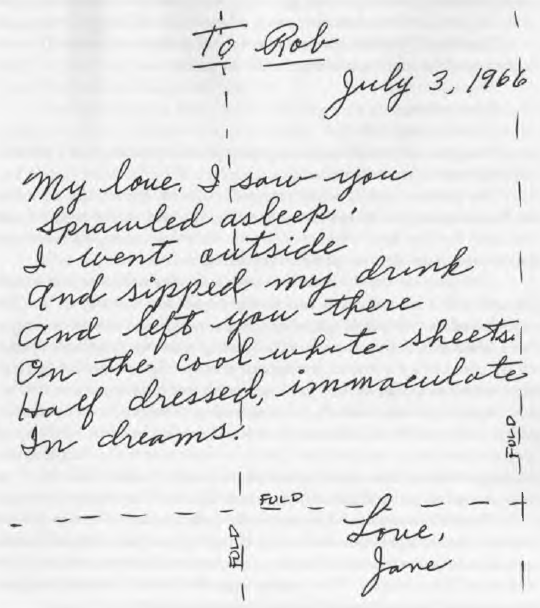 To Rob
July 3, 1966
My love. I saw you
Sprawled asleep.
I went outside
And sipped my drink
And left you there
On the cool white sheets.
Half dressed, immaculate
In dreams.
FOLD
FOLD
FOLD
Love,
Jane